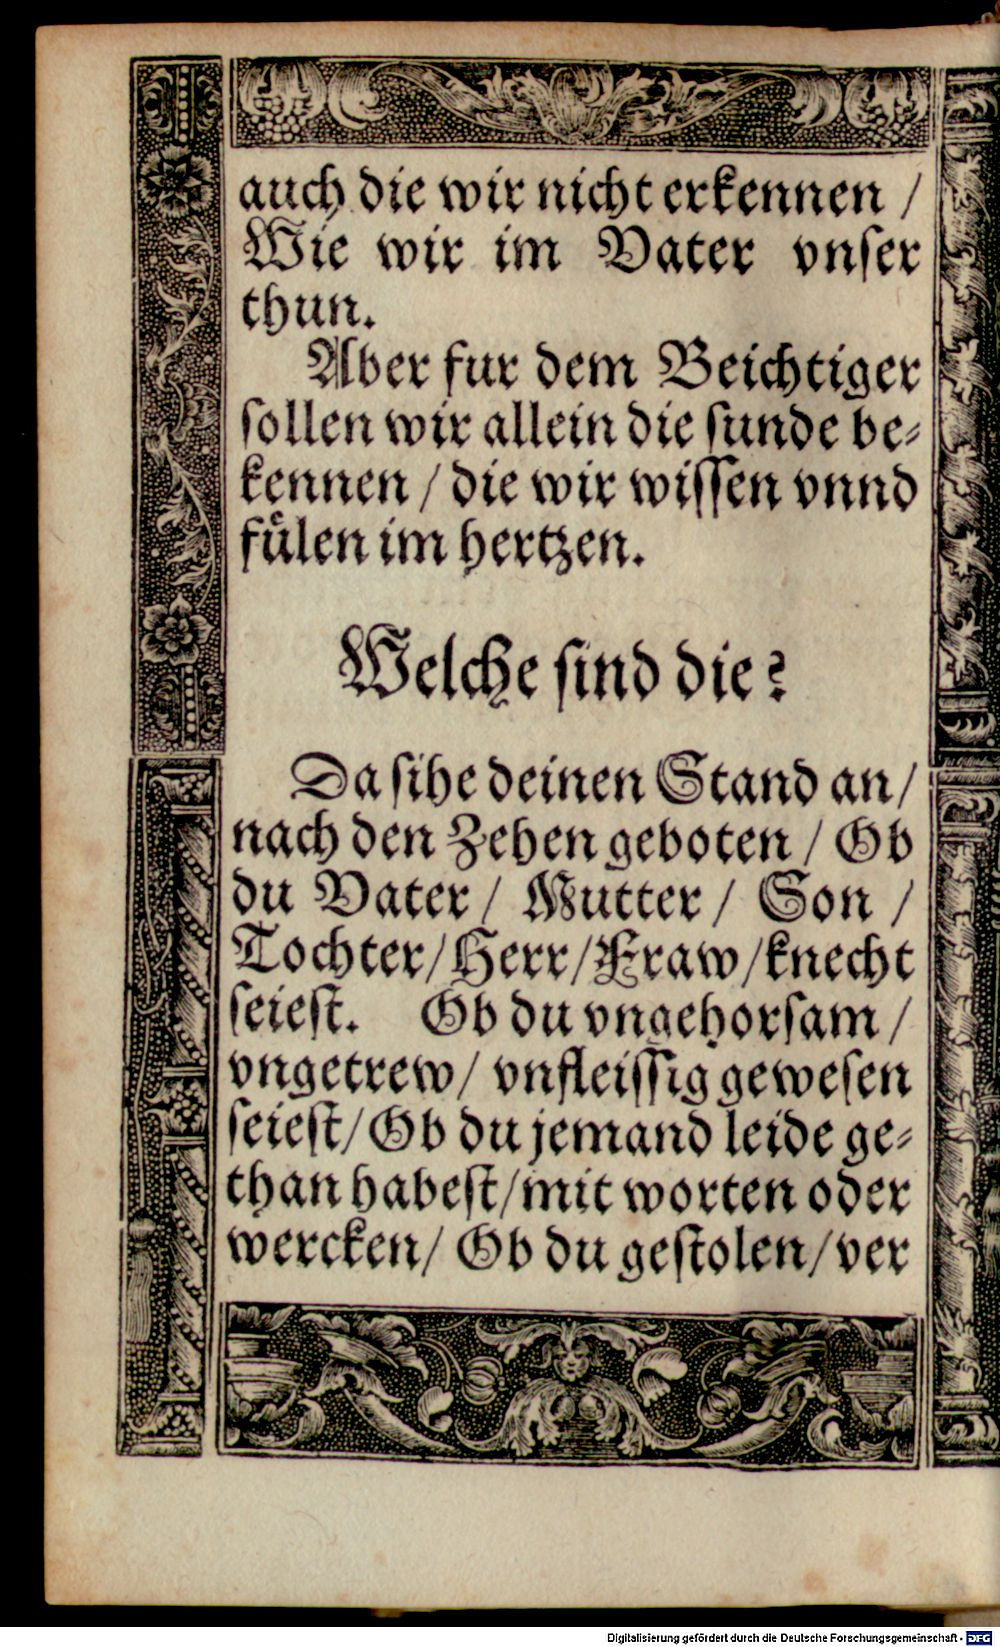 auch die wir nicht erkennen /
Wie wir im Vater vnser
thun.
Aber fur dem Beichtiger
sollen wir allein die sunde be⸗
kennen / die wir wissen vnnd
fuͤlen im hertzen.
Welche sind die?
Da sihe deinen Stand an /
nach den Zehen geboten / Ob
du Vater / Mutter / Son /
Tochter / Herr / Fraw / knecht
seiest. Ob du vngehorsam /
vngetrew / vnfleissig gewesen
seiest / Ob du jemand leide ge⸗
than habest / mit worten oder
wercken / Ob du gestolen / ver
Digitalisierung gefördert durch die Deutsche Forschungsgemeinschaft - DFG